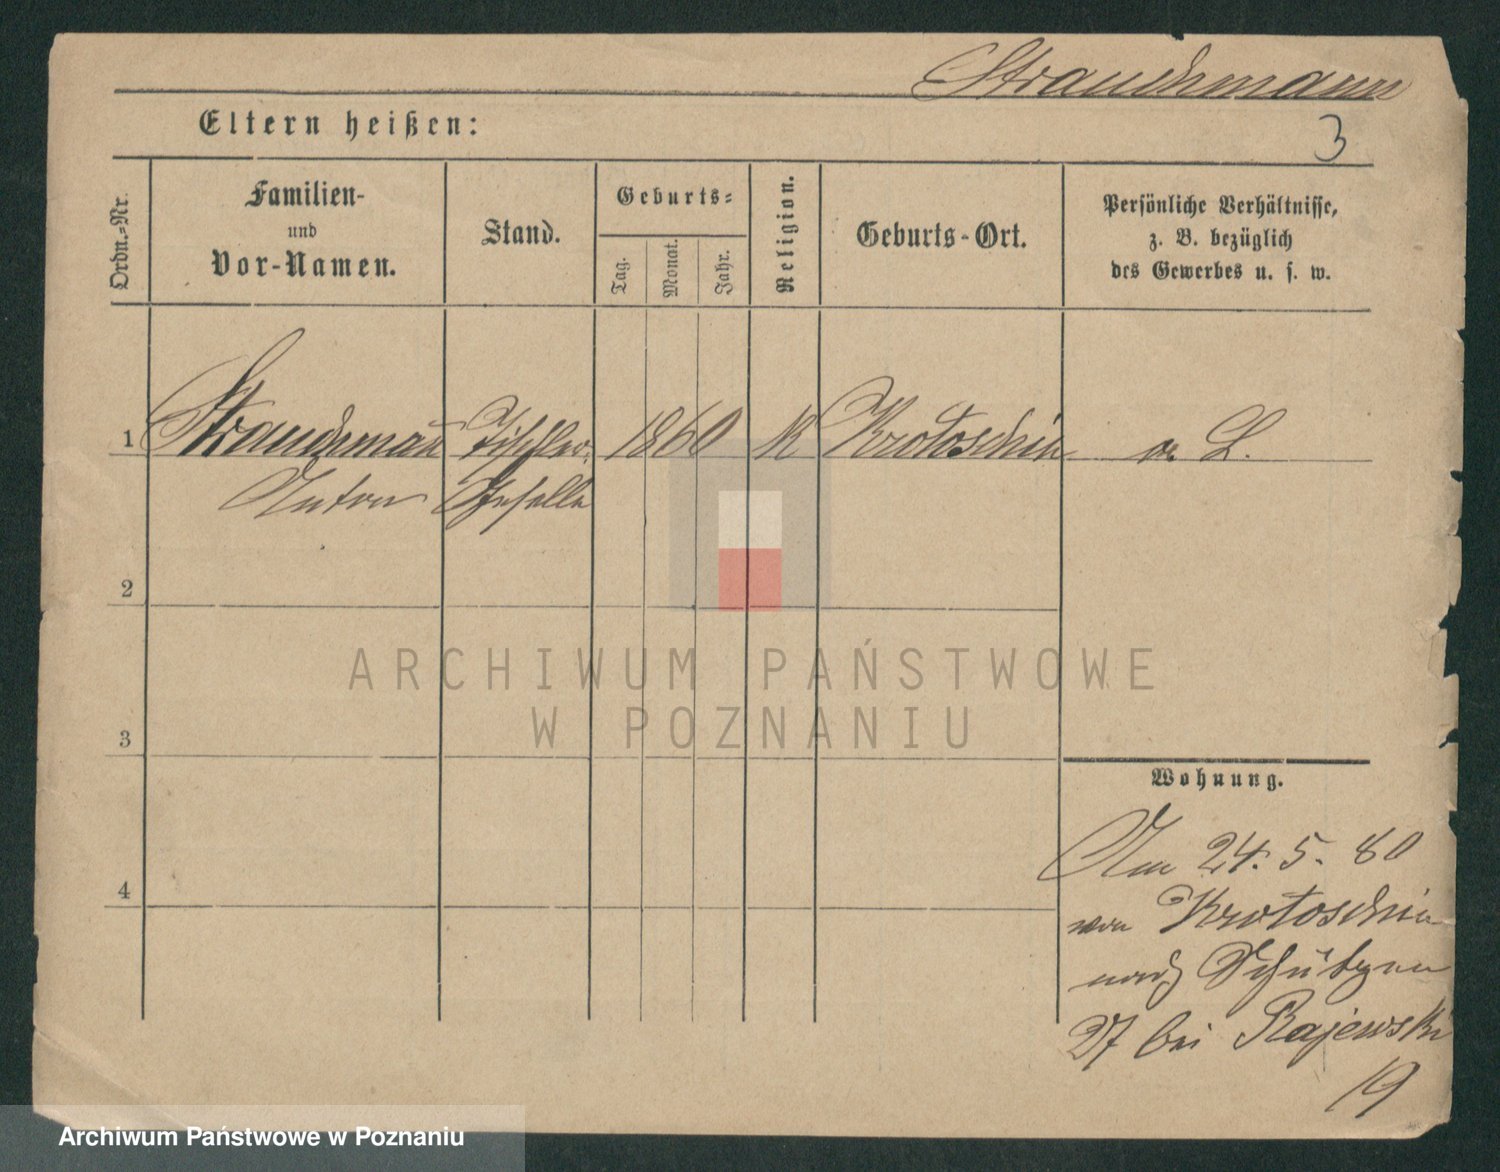 Strauchmann
3
Eltern heißen:
Ordn.-Nr.
Familien-
und
Vor-Namen.
Stand.
Geburts-
Tag.
Monat.
Jahr.
Religion.
Geburts-Ort.
Persönliche Verhältnisse,
z. B. bezüglich
des Gewerbes u. s. w.
1 Strauchmann Tischler- 1860 K Krotoschin L.
Anton Geselle
2
3
4
Wohnung.
Am 24. 5. 80
von Krotoschin
nach Schützen
27 bei Rajewski
19
ARCHIWUM PAŃSTWOWE
W POZNANIU
Archiwum Państwowe w Poznaniu